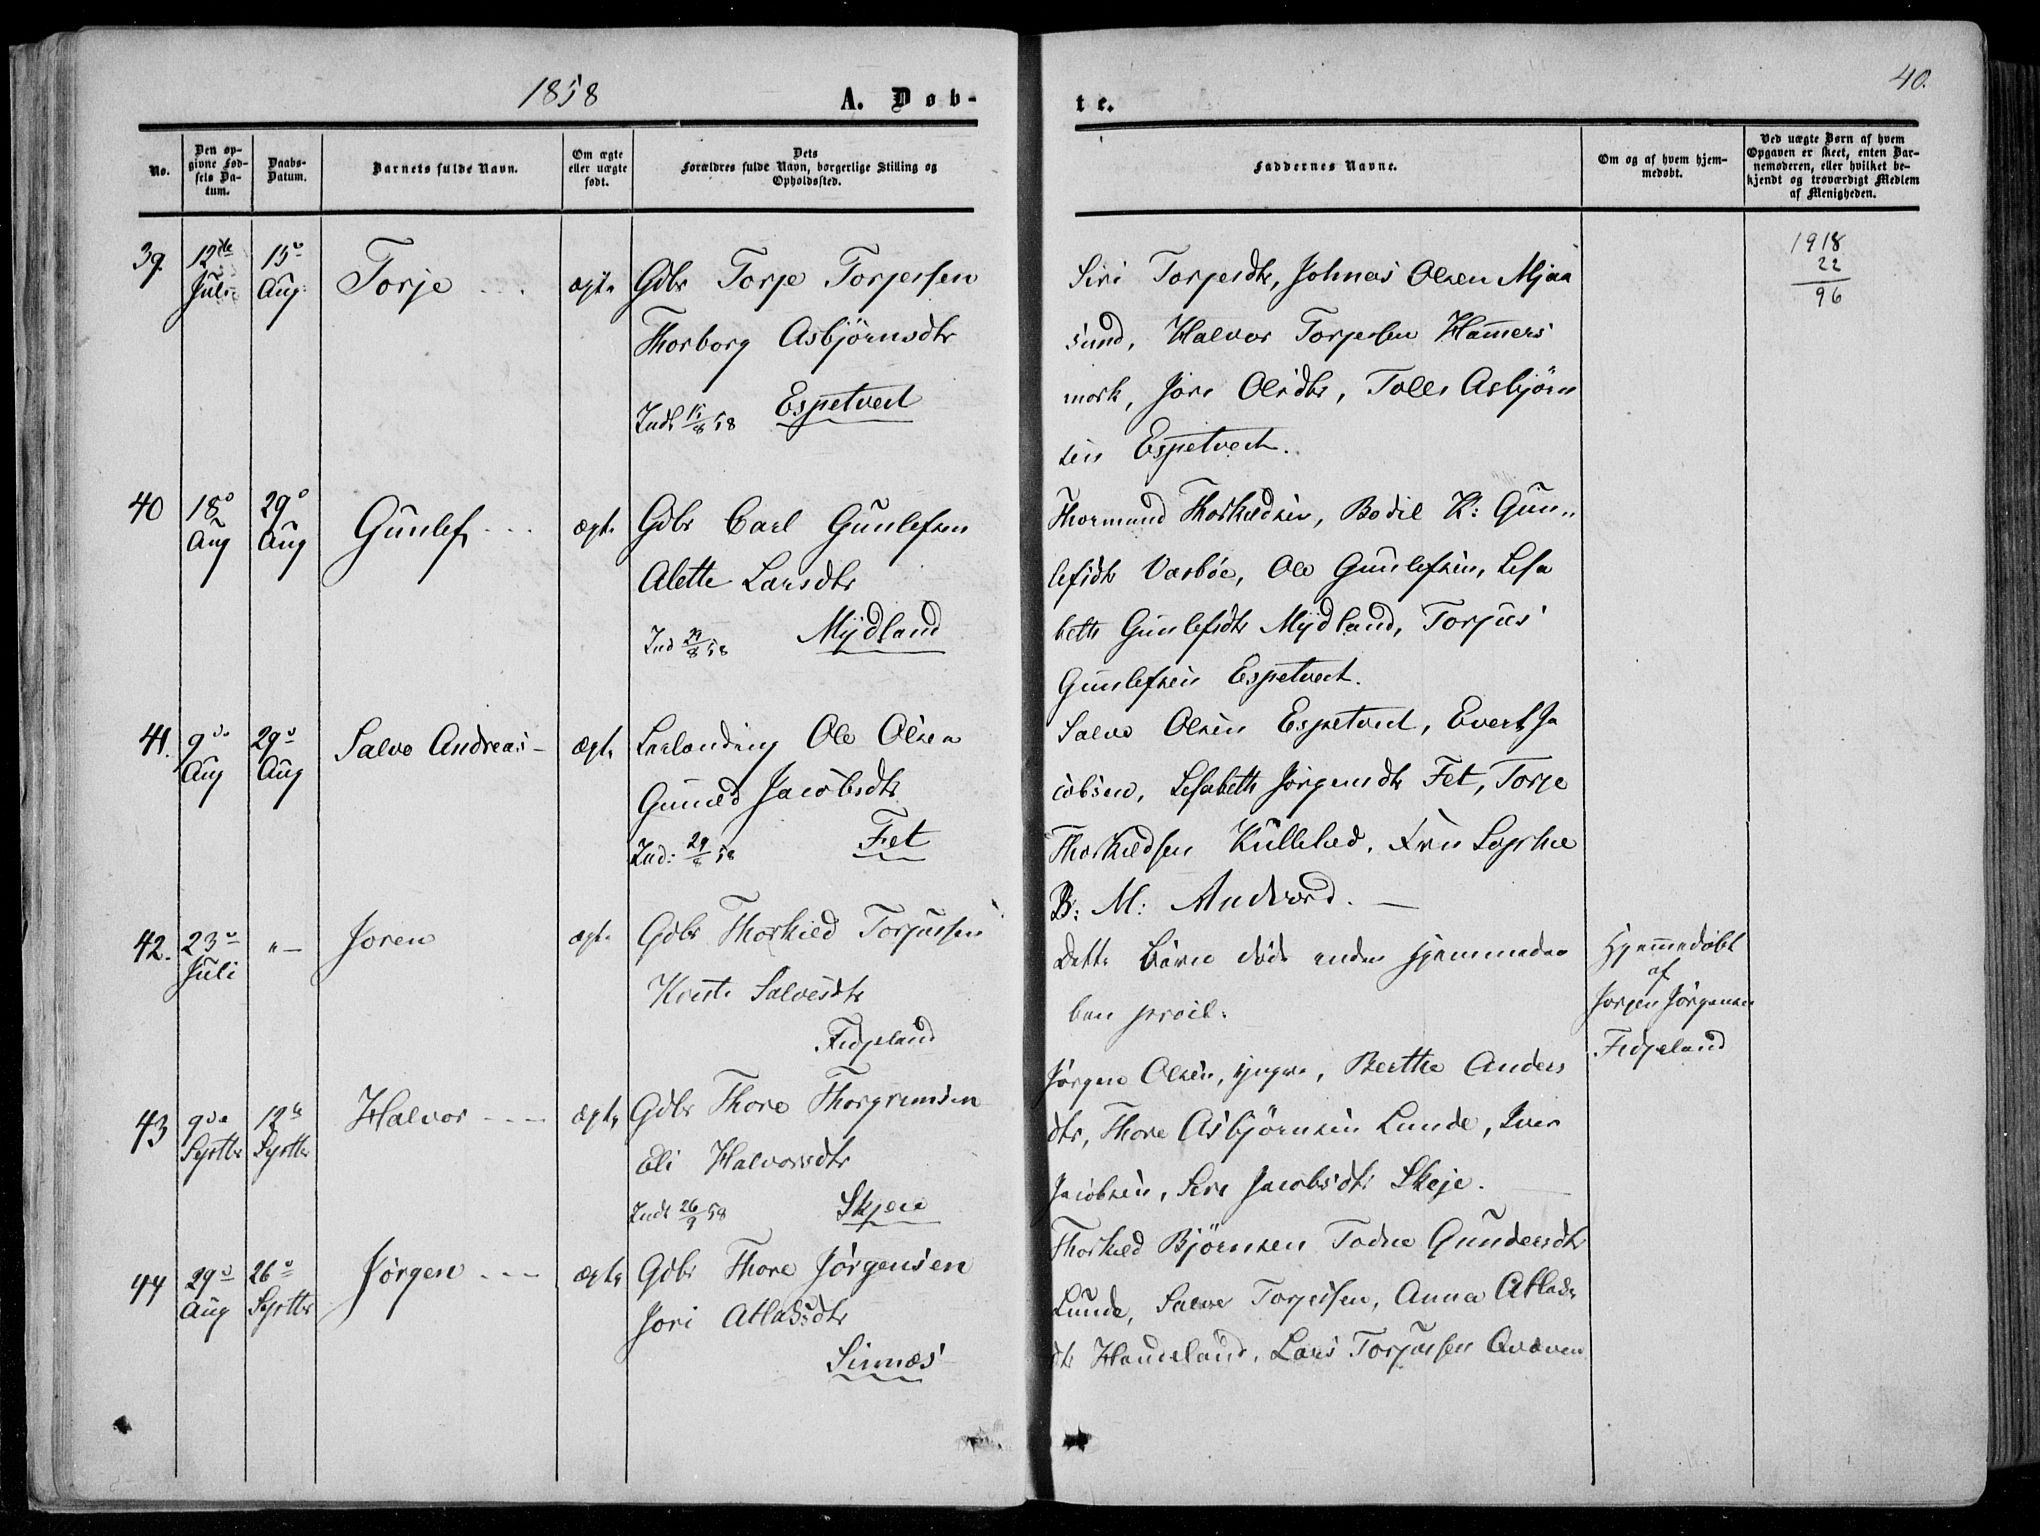 1858
A. Døb-
te.
40.
No.
Den op-
givne Fød-
sels Da-
tum.
Daabs-
Datum.
Barnets fulde Navn.
Om ægte
eller uægte
født.
Dets
Forældres fulde Navn, borgerlige Stilling og
Opholdssted.
Faddernes Navne.
Om og af hvem hjem-
medøbt.
Ved uægte Børn af hvem
Opgaven er skeet, enten Bar-
nemoderen, eller hvilket be-
kjendt og troværdigt Medlem
af Menigheden.
39.
12te
Juli
15
Aug:
Torje
ægte
Gdbr Torje Torjersen
Thorborg Asbjörnsdtr
Indt 15/8 58 Espetvedt
Siri Torjersdtr, Johnas Olsen Mjaa
sund, Halvor Torjesen Hamers
mork, Jore Olsdtr, Tolle Asbjörn
sen Espetvedt.
1918
22
96
40
18
Aug
29
Aug
Gunlef
ægte
Gdbr Carl Gunlefsen
Alette Larsdtr
Ind 29/8 58 Mydland
Thormund Thorkildsen, Bodil K: Gun
lefsdtr Vasbøe, Ole Gunlefsen, Lisa
beth Gunlefsdtr Mydland, Torjus
Gunlefsen Espetvedt.
41.
9de
Aug
29
Aug
Salve Andreas
ægte
Ole Olsen
Guned Jacobsdtr
Ind: 29/8 58 Fet
Salve Olsen Espetvedt, Evert Ja
cobsen, Lisabeth Jørgensdtr Fet, Torje
Thorkildsen Kulleled, Frü Sophie
B: M: Andvord.
42.
23
Juli
"
Joren
ægte
Gdbr Thorkild Torjussen
Kirsti Salvesdtr
Fidjeland
Dette Barn døde inden hjemmedaa
ben
Hjemmedøbt
af
Jørgen Jørgensen
Fidjeland
43
9de
Septbr
12te
Septbr
Halvor
ægte
Gdbr Thore Thorgrimsen
Eli Halvorsdtr
Indt 26/9 58 Skjeie
Jørgen Olsen, Berthe Anders
dtr, Thore Asbjørnsen Lunde, Iver
Jacobsen, Siri Jacobsdtr Skeje.
44
29
Aug
26
Septbr
Jørgen
ægte
Gdbr Thore Jørgensen
Jori Atlasdtr
Sinnæs
Thorkild Bjørnsen Todne Gundersdtr
Lunde, Salve Torjersen, Anna Atlas
dtr Haneland, Lars Torjussen Qvæven